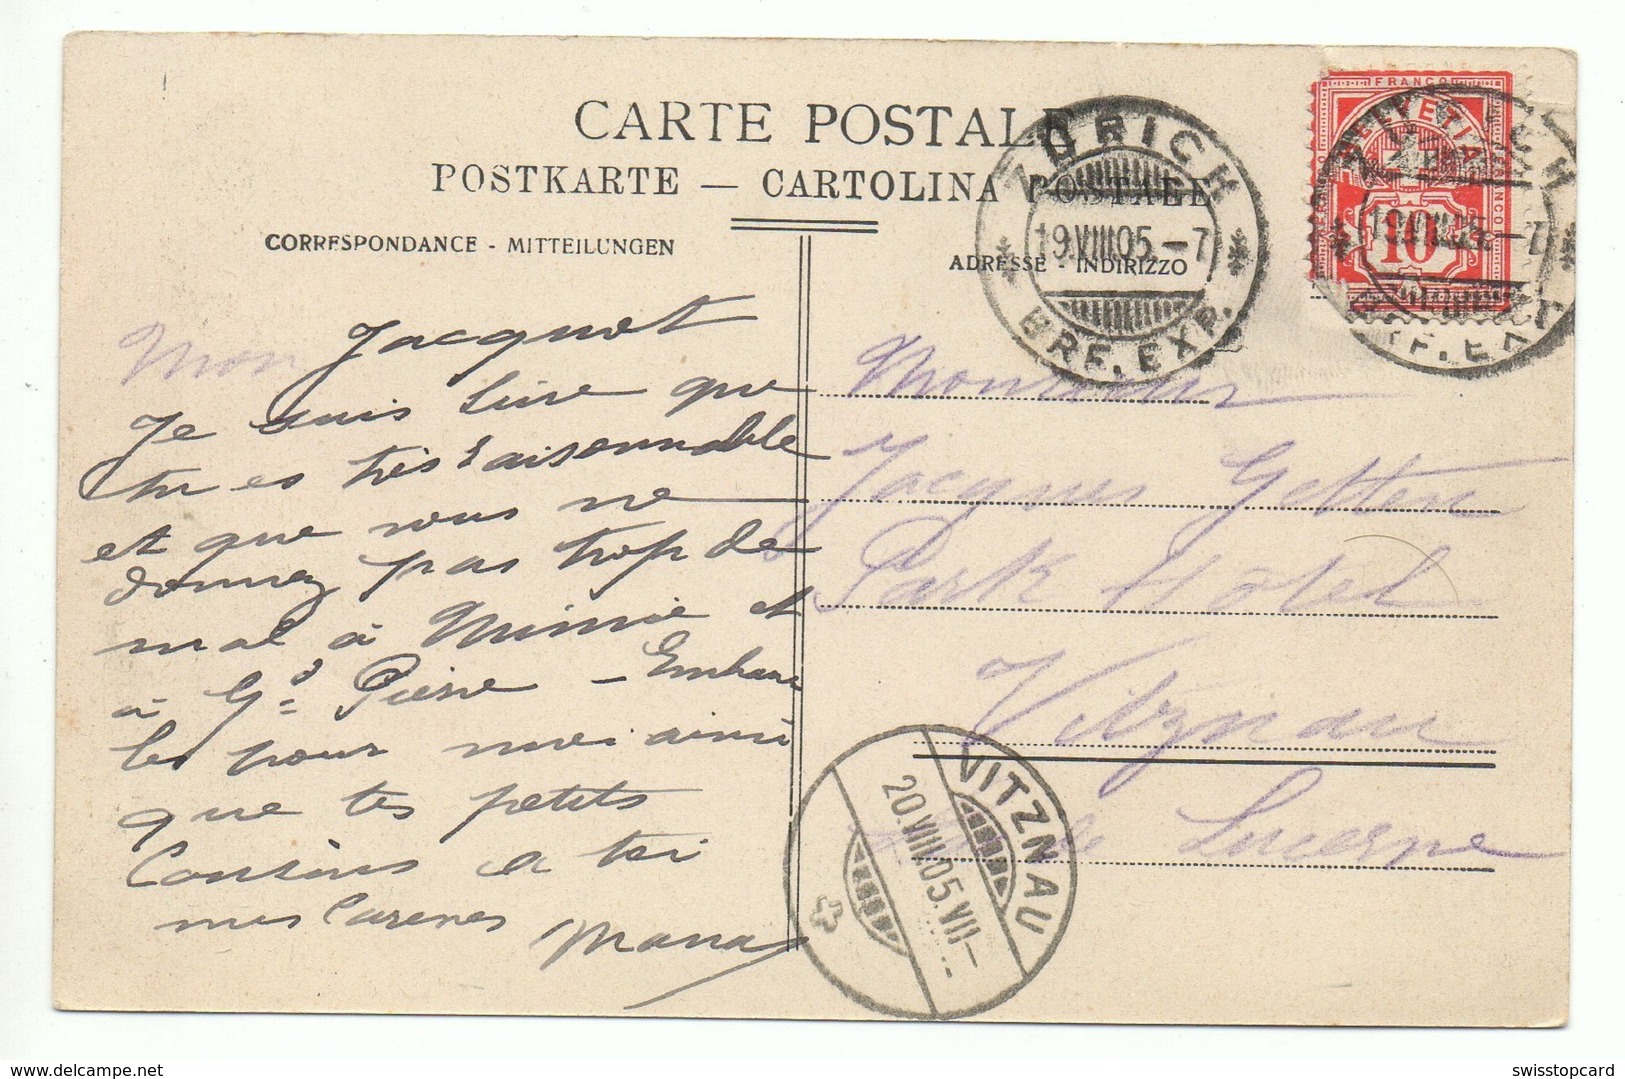 CARTE POSTALE
POSTKARTE — CARTOLINA POSTALE
CORRESPONDANCE - MITTEILUNGEN
ADRESSE - INDIRIZZO
ZÜRICH
19.VIII.05.-7
BRF. EXP.
FRANCO
HELVETIA
10
ZÜRICH
19.VIII.05.-7
BRF. EXP.
Mon Jacquot
Je suis sûre que
tu es très raisonnable
et que vous ne
donnez pas trop de
mal à Mimie et
à Gd Pierre - Embrasse
les pour moi ainsi
que tes petits
Cousins a toi
mes Caresses
Mana
Monsieur
Jacques
Park Hôtel
Vitznau
Lucerne
VITZNAU
20.VIII.05.VII-
swisstopcard